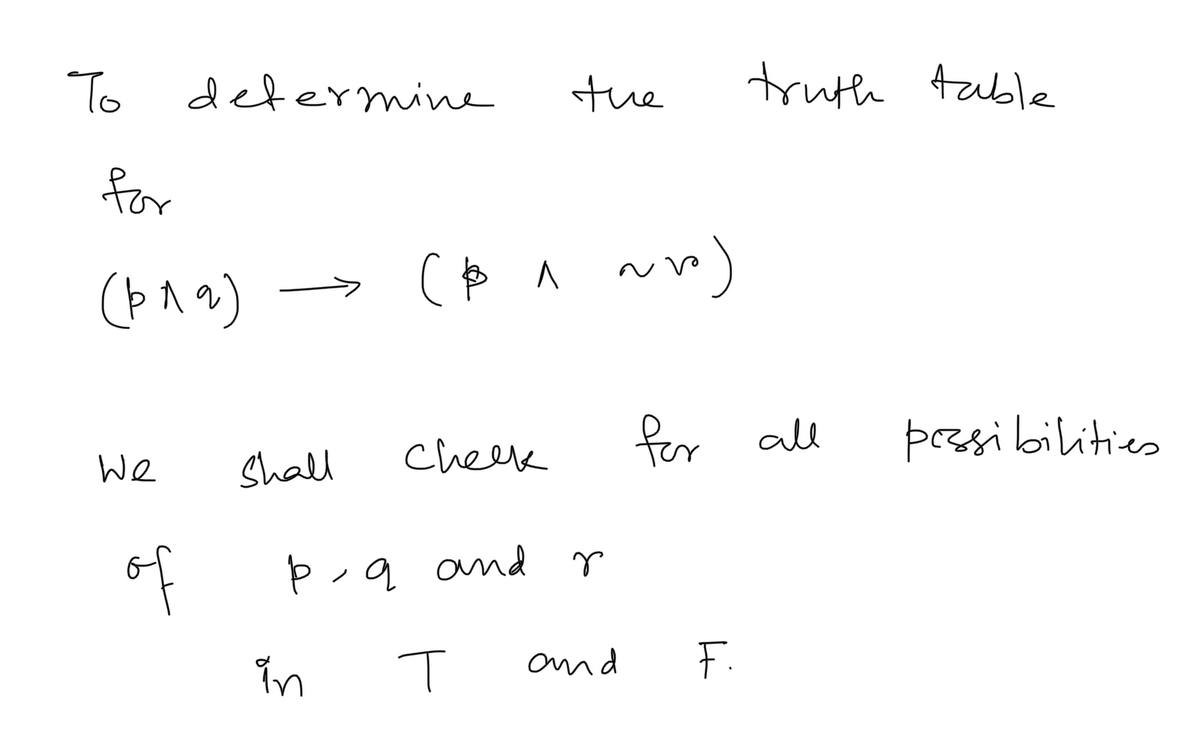 To determine the truth table
for
(p ∧ q) → (p ∧ ~r)
We shall check for all possibilities
of p, q and r
in T and F.